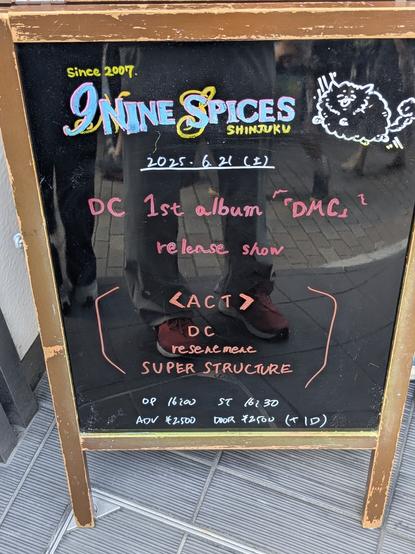 Since 2007.
9 NINE SPICES
SHINJUKU
2025.6.21 (土)
DC 1st album 『DMC』
release show
<ACT>
DC
resenemene
SUPER STRUCTURE
OP 16:00 ST 16:30
ADV ¥2500 DOOR ¥2500 (+1D)